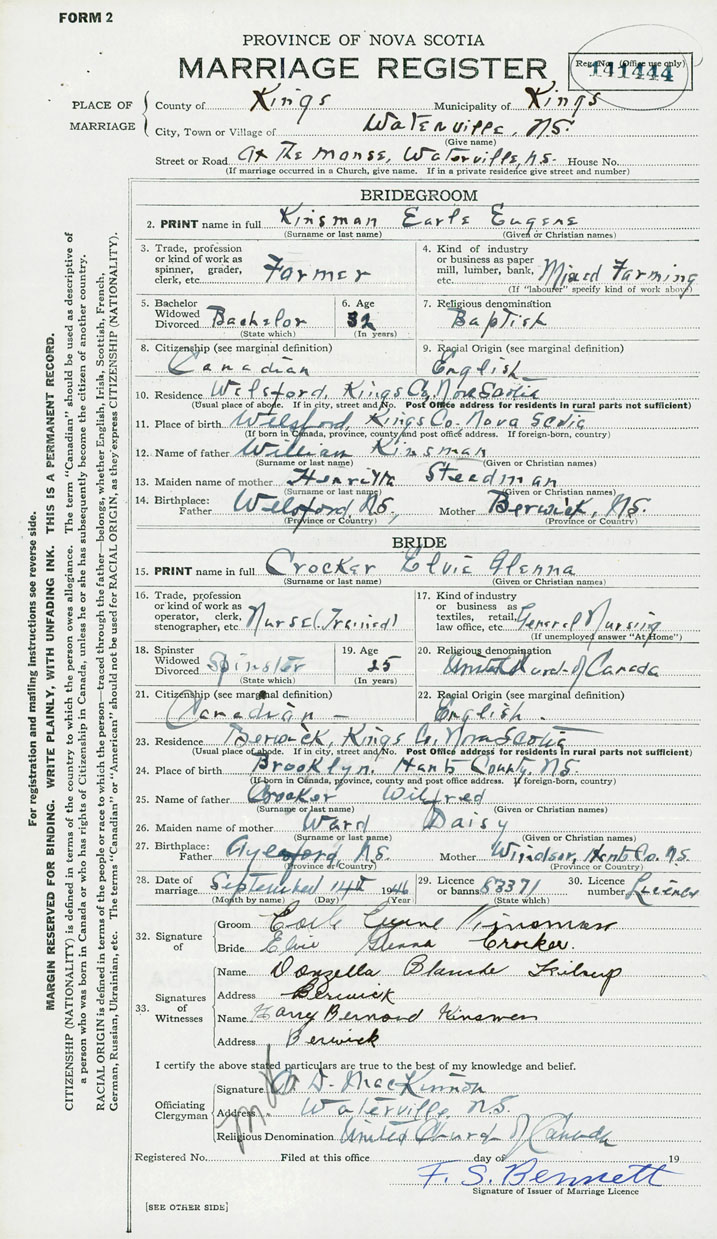 FORM 2
PROVINCE OF NOVA SCOTIA
MARRIAGE REGISTER
Reg. No. (Office use only)
141444
PLACE OF MARRIAGE
County of Kings Municipality of Kings
City, Town or Village of Waterville, N.S.
(Give name)
Street or Road At The Manse, Waterville, N.S. House No.
(If marriage occurred in a Church, give name. If in a private residence give street and number)
BRIDEGROOM
2. PRINT name in full Kinsman Earle Eugene
(Surname or last name) (Given or Christian names)
3. Trade, profession or kind of work as spinner, grader, clerk, etc. Farmer
4. Kind of industry or business as paper mill, lumber, bank, etc. Mixed Farming
(If "labourer" specify kind of work above)
5. Bachelor Widowed Divorced Bachelor
(State which)
6. Age 32
(In years)
7. Religious denomination
Baptist
8. Citizenship (see marginal definition)
Canadian
9. Racial Origin (see marginal definition)
English
10. Residence Welsford, Kings Co, Nova Scotia
(Usual place of abode. If in city, street and No. Post Office address for residents in rural parts not sufficient)
11. Place of birth Welsford, Kings Co. Nova Scotia
(If born in Canada, province, county and post office address. If foreign-born, country)
12. Name of father William Kinsman
(Surname or last name) (Given or Christian names)
13. Maiden name of mother Henrietta Steadman
(Surname or last name) (Given or Christian names)
14. Birthplace: Father Welsford, N.S. Mother Berwick, N.S.
(Province or Country) (Province or Country)
BRIDE
15. PRINT name in full Crocker Elvie Glenna
(Surname or last name) (Given or Christian names)
16. Trade, profession or kind of work as operator, clerk, stenographer, etc. Nurse (Trained)
17. Kind of industry or business as textiles, retail, law office, etc. General Nursing
(If unemployed answer "At Home")
18. Spinster Widowed Divorced Spinster
(State which)
19. Age 25
(In years)
20. Religious denomination
United Church of Canada
21. Citizenship (see marginal definition)
Canadian -
22. Racial Origin (see marginal definition)
English.
23. Residence Berwick, Kings Co, Nova Scotia
(Usual place of abode. If in city, street and No. Post Office address for residents in rural parts not sufficient)
24. Place of birth Brooklyn. Hants County, N.S.
(If born in Canada, province, county and post office address. If foreign-born, country)
25. Name of father Crocker Wilfred
(Surname or last name) (Given or Christian names)
26. Maiden name of mother Ward Daisy
(Surname or last name) (Given or Christian names)
27. Birthplace: Father Aylesford, N.S. Mother Windsor, Hants Co. N.S.
(Province or Country) (Province or Country)
28. Date of marriage September 14th 1946
(Month by name) (Day) (Year)
29. Licence or banns 83371
(State which)
30. Licence number Licence
32. Signature of
Groom Earle Eugene Kinsman
Bride Elvie Glenna Crocker.
33. Signatures of Witnesses
Name Donzella Blanche
Address Berwick
Name Harry Bernard Kinsman
Address Berwick
I certify the above stated particulars are true to the best of my knowledge and belief.
Officiating Clergyman
Signature D. MacKinnon
Address Waterville, N.S.
Religious Denomination United Church of Canada
Registered No. Filed at this office day of 19
F. S. Bennett
Signature of Issuer of Marriage Licence
[SEE OTHER SIDE]
For registration and mailing instructions see reverse side.
MARGIN RESERVED FOR BINDING. WRITE PLAINLY, WITH UNFADING INK. THIS IS A PERMANENT RECORD.
CITIZENSHIP (NATIONALITY) is defined in terms of the country to which the person owes allegiance. The term "Canadian" should be used as descriptive of
a person who was born in Canada or who has rights of Citizenship in Canada, unless he or she has subsequently become the citizen of another country.
RACIAL ORIGIN is defined in terms of the people or race to which the person—traced through the father—belongs, whether English, Irish, Scottish, French,
German, Russian, Ukrainian, etc. The terms "Canadian" or "American" should not be used for RACIAL ORIGIN, as they express CITIZENSHIP (NATIONALITY).